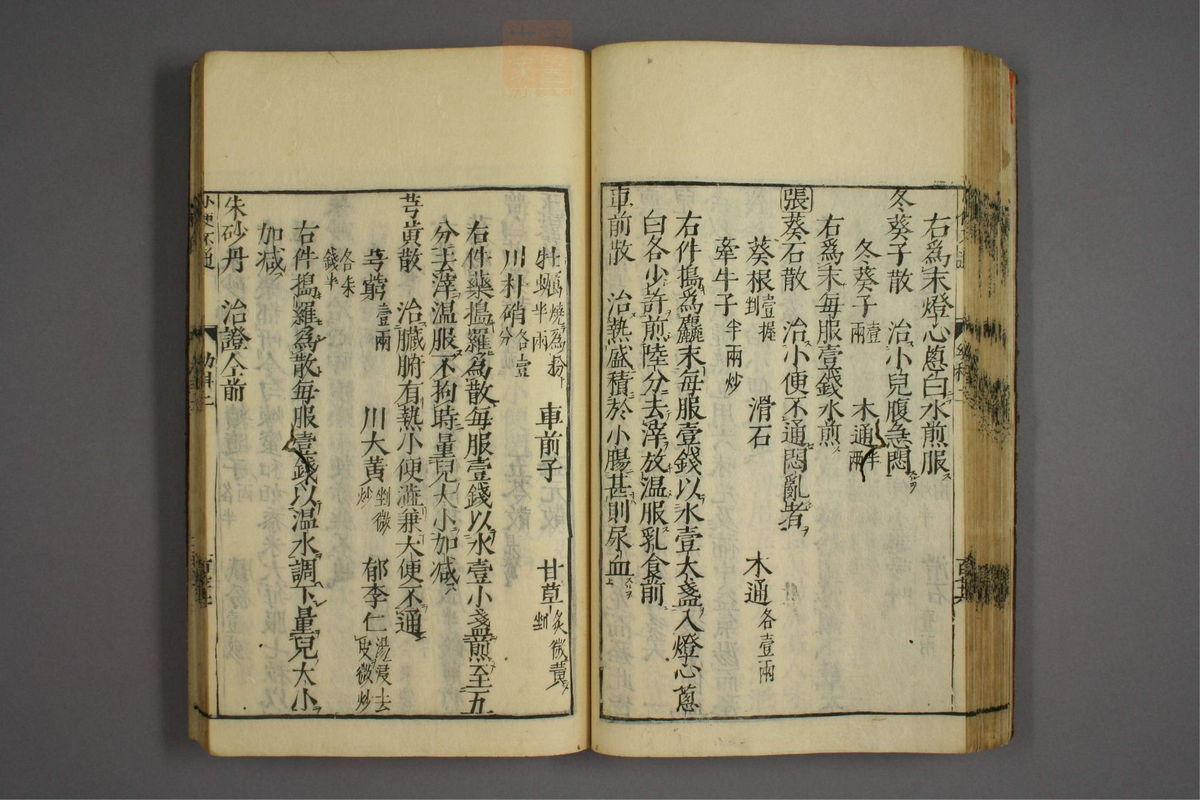 右爲末燈心蔥白水煎服
冬葵子散 治小兒腹急悶
冬葵子壹兩 木通半兩
右爲末每服壹錢水煎
張葵石散 治小便不通悶亂者
葵根壹握剉 滑石 木通各壹兩
牽牛子半兩炒
右件搗爲麤末每服壹錢以水壹大盞入燈心蔥
白各少許煎陸分去滓放温服乳食前
車前散 治熱盛積於小腸甚則尿血
牡蠣燒爲粉半兩 車前子 甘草炙微黃剉
川朴硝各壹分
右件藥搗羅爲散每服壹錢以水壹小盞煎至五
分去滓温服不拘時量兒大小加减
芎黃散 治臓腑有熱小便澁兼大便不通
芎藭壹兩 川大黃剉微炒 郁李仁湯浸去皮微炒
各朱錢半
右件搗羅爲散每服壹錢以温水調下量兒大小
加减
朱砂丹 治證仝前
小便不通 幼科二